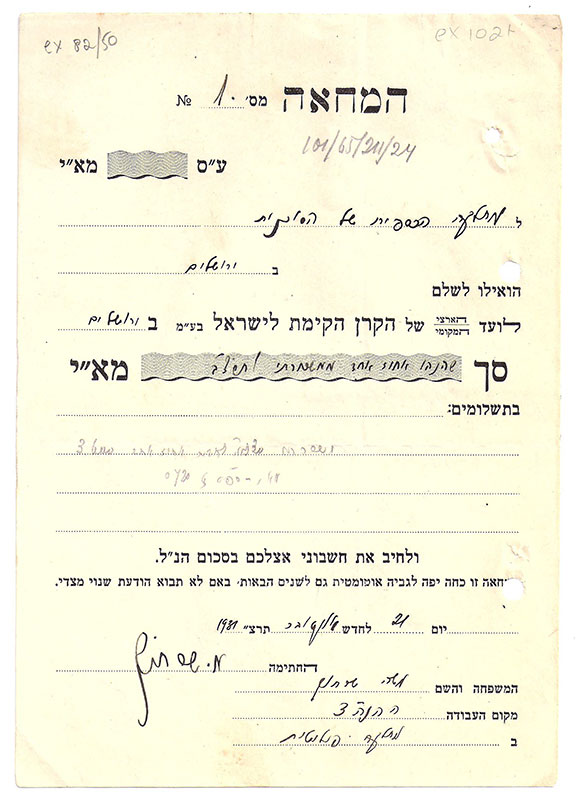 ex 82/50
ex 102+
המחאה מס' 1. №
101/65/211/24
ע"ס מא"י
ל מחלקה הכספית של הסוכנות
ב ירושלים
הואילו לשלם
לועד הארצי המקומי של הקרן הקימת לישראל בע"מ ב ירושלים
סך שהנהו אחוז אחד ממשכורתי מא"י
בתשלומים:
ולחיב את חשבוני אצלכם בסכום הנ"ל.
חאה זו כחה יפה לגביה אוטומטית גם לשנים הבאות, באם לא תבוא הודעת שנוי מצדי.
יום 21 לחדש אוקטובר תרצ" 1931
החתימה מ. שרתוק
המשפחה והשם משה שרתוק
מקום העבודה ההנה"צ
ב מחלקה פוליטית